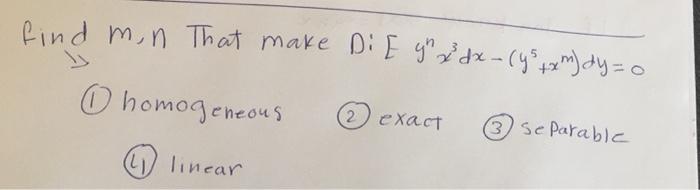 find m,n That make D:E yⁿx³dx-(y⁵+xᵐ)dy=0
① homogeneous ② exact ③ separable
④ linear